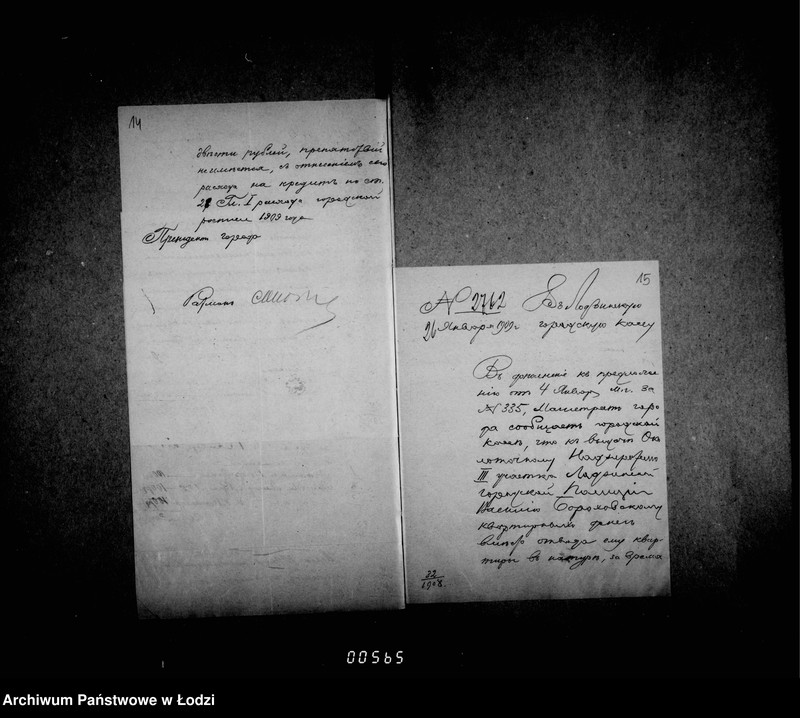 14
двѣсти рублей, препятствій
неимѣется, съ отнесеніемъ сего
расхода на кредитъ по ст.
2 Гл. I расхода городской
росписи 1909 года
Президентъ города
Ратманъ
15
№ 2762 Въ Лодзинскую
26 Января 1909 г. городскую кассу
Въ дополненіе къ предложе
нію отъ 4 Января м.г. за
№ 335, Магистратъ горо
да сообщаетъ городской
кассѣ, что къ выдачѣ Око
лоточному Надзирателю
III участка Лодзинской
городской Полиціи
Василію Сороховскому
квартирныхъ денегъ
вмѣсто отвода ему квар
тиры въ натурѣ, за время
32
1908.
00565
Archiwum Państwowe w Łodzi